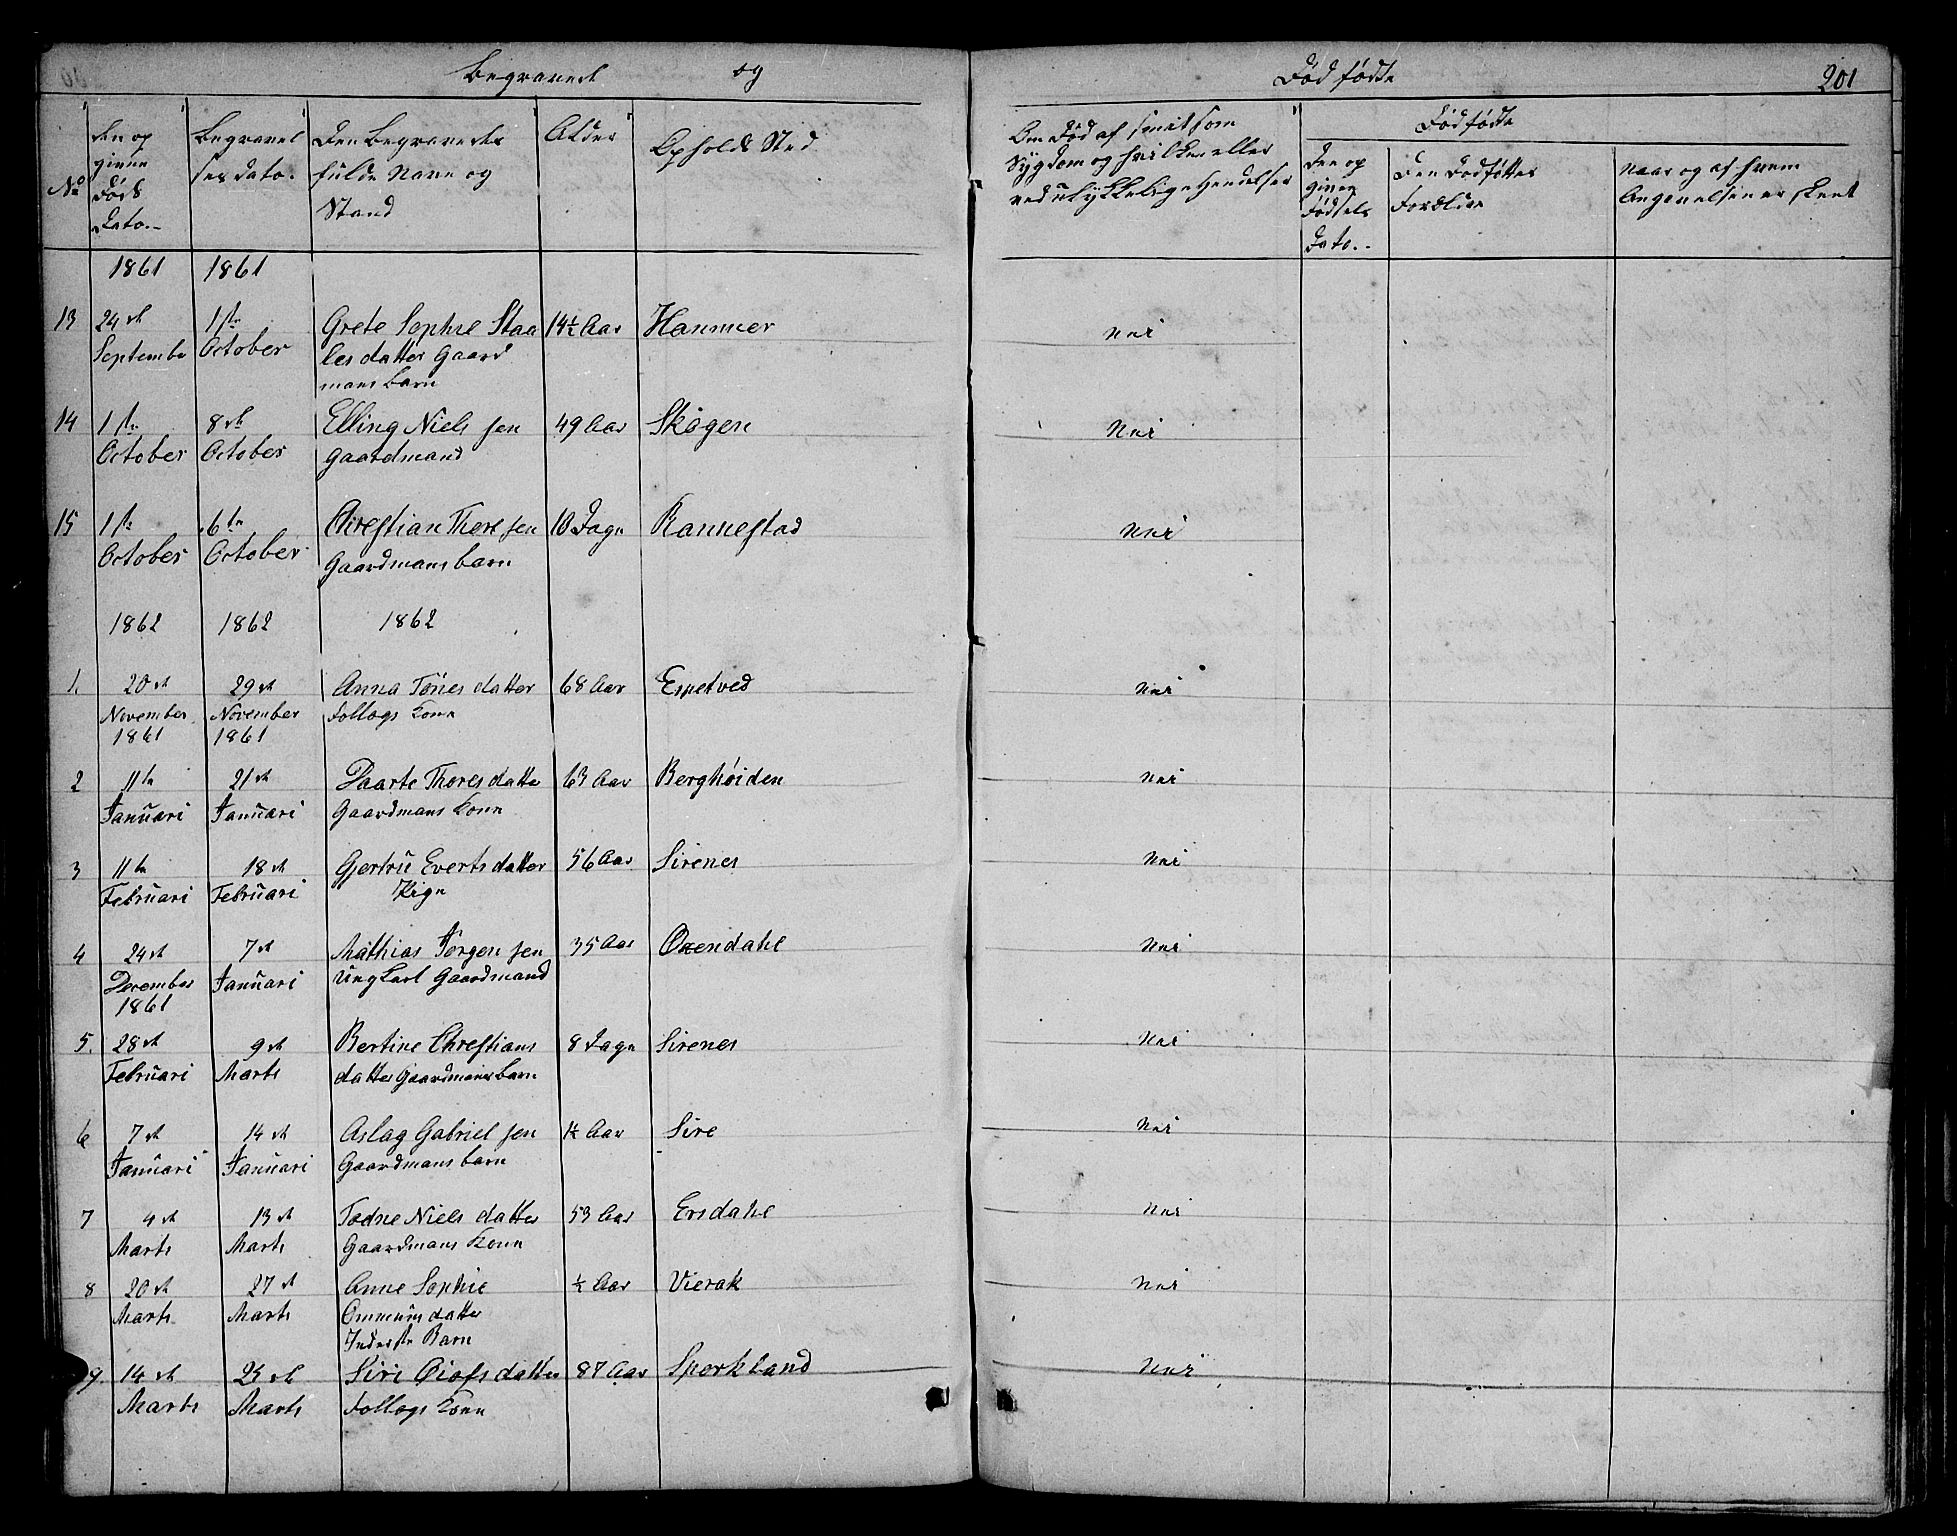 Begravede og Dødfødte 201
No
Den op
givne
Døds
Dato.
Begravel
ses Dato.
Den Begravedes
fulde Navn og
Stand
Alder
Opholds Sted
Om Død af smitsom
Sygdom og hvilken eller
ved ulykkelige Hendelser
Dødfødte
Den op
given
Fødsels
Dato.
Den Dødfødtes
Forældre
Naar og af hvem
Angivelsen er skeet
1861 1861
13 24de 1ste Grete Sophie Staa 14½ Aar Hammer Nei
September October les datter Gaard
mans barn
14 1ste 8de Elling Niels sen 49 Aar Skogen Nei
October October Gaardmand
15 1ste 6te Christian Thore sen 10 Dage Rannestad Nei
October October Gaardmans barn
1862 1862 1862
1. 20de 29de Anna Tönes datter 68 Aar Espetved Nei
November November Follogs Kone
1861 1861
2 11te 21de Daarte Thores datte 63 Aar Berghöiden Nei
Januari Januari Gaardmans Kone
3 11te 18de Gjertru Everts datter 56 Aar Sirenes Nei
Februari Februari Pige
4 24de 7de Mathias Jörgen sen 35 Aar Oxendahl Nei
December Januari Ungkarl Gaardmand
1861
5. 28de 9de Bertine Chrestians 8 Dage Sirenes Nei
Februari Marts datter Gaardmans barn
6 7de 14de Aslag Gabriel sen 1½ Aar Sire Nei
Januari Januari Gaardmans barn
7 4de 13de Todne Niels datter 53 Aar Ersdahl Nei
Marts Marts Gaardmans Kone
8 20de 27de Anne Sophie ½ Aar Vierak Nei
Marts Marts Ommuns datter
Inderste Barn
9. 14de 23de Siri Oiofs datter 87 Aar Sporkland Nei
Marts Marts Follogs Kone